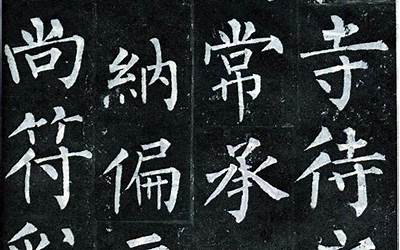 寺待
常承
納偏
尚符